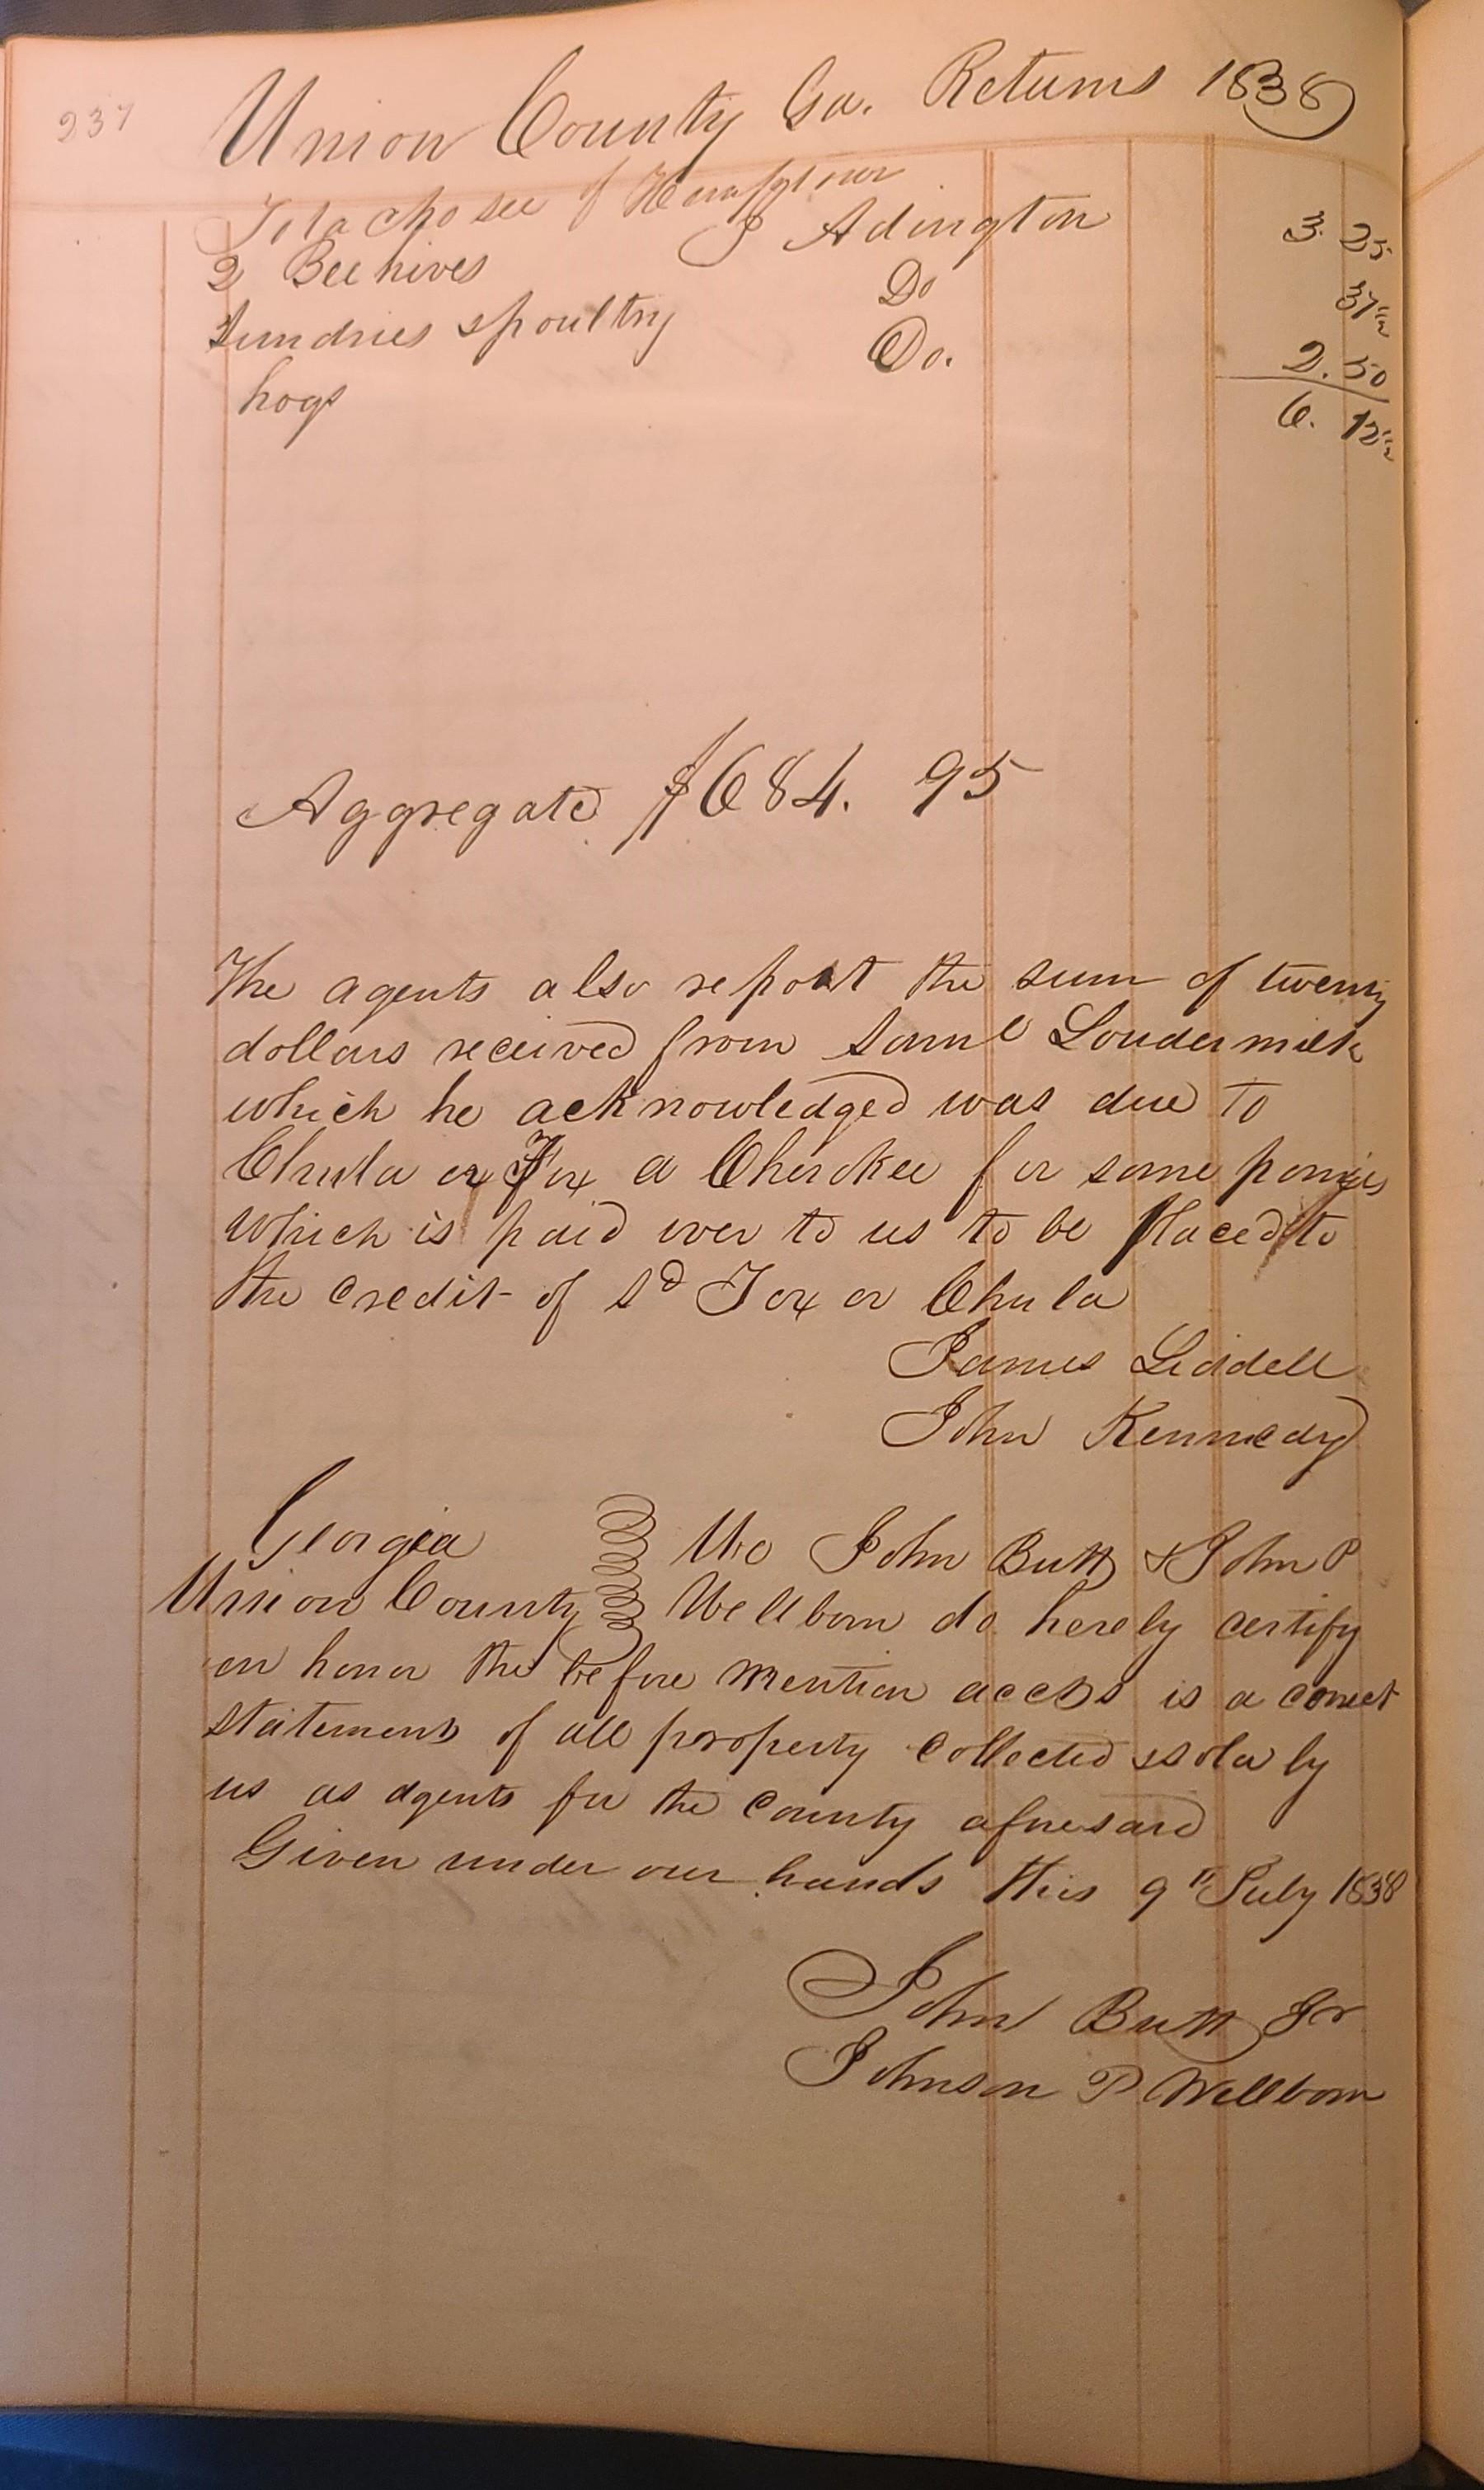 237
Union County Ga. Returns 1838
of
2 Bee hives J Adington 3. 25
Sundries & poultry Do 37 1/2
hogs Do. 2. 50
6. 12 1/2
Aggregate $684. 95
The agents also report the sum of twenty
dollars received from Saml Loudermilk
which he acknowledged was due to
Chula or Fox a Cherokee for some ponies
which is paid over to us to be placed to
the credit of sd Fox or Chula
James Liddell
John Kennedy
Georgia We John Butt & John P
Union County Wellborn do hereby certify
on honor the before mention accts is a correct
statement of all property collected & sold by
us as agents for the County aforesaid
Given under our hands this 9th July 1838
John Butt Jr
Johnson P Wellborn